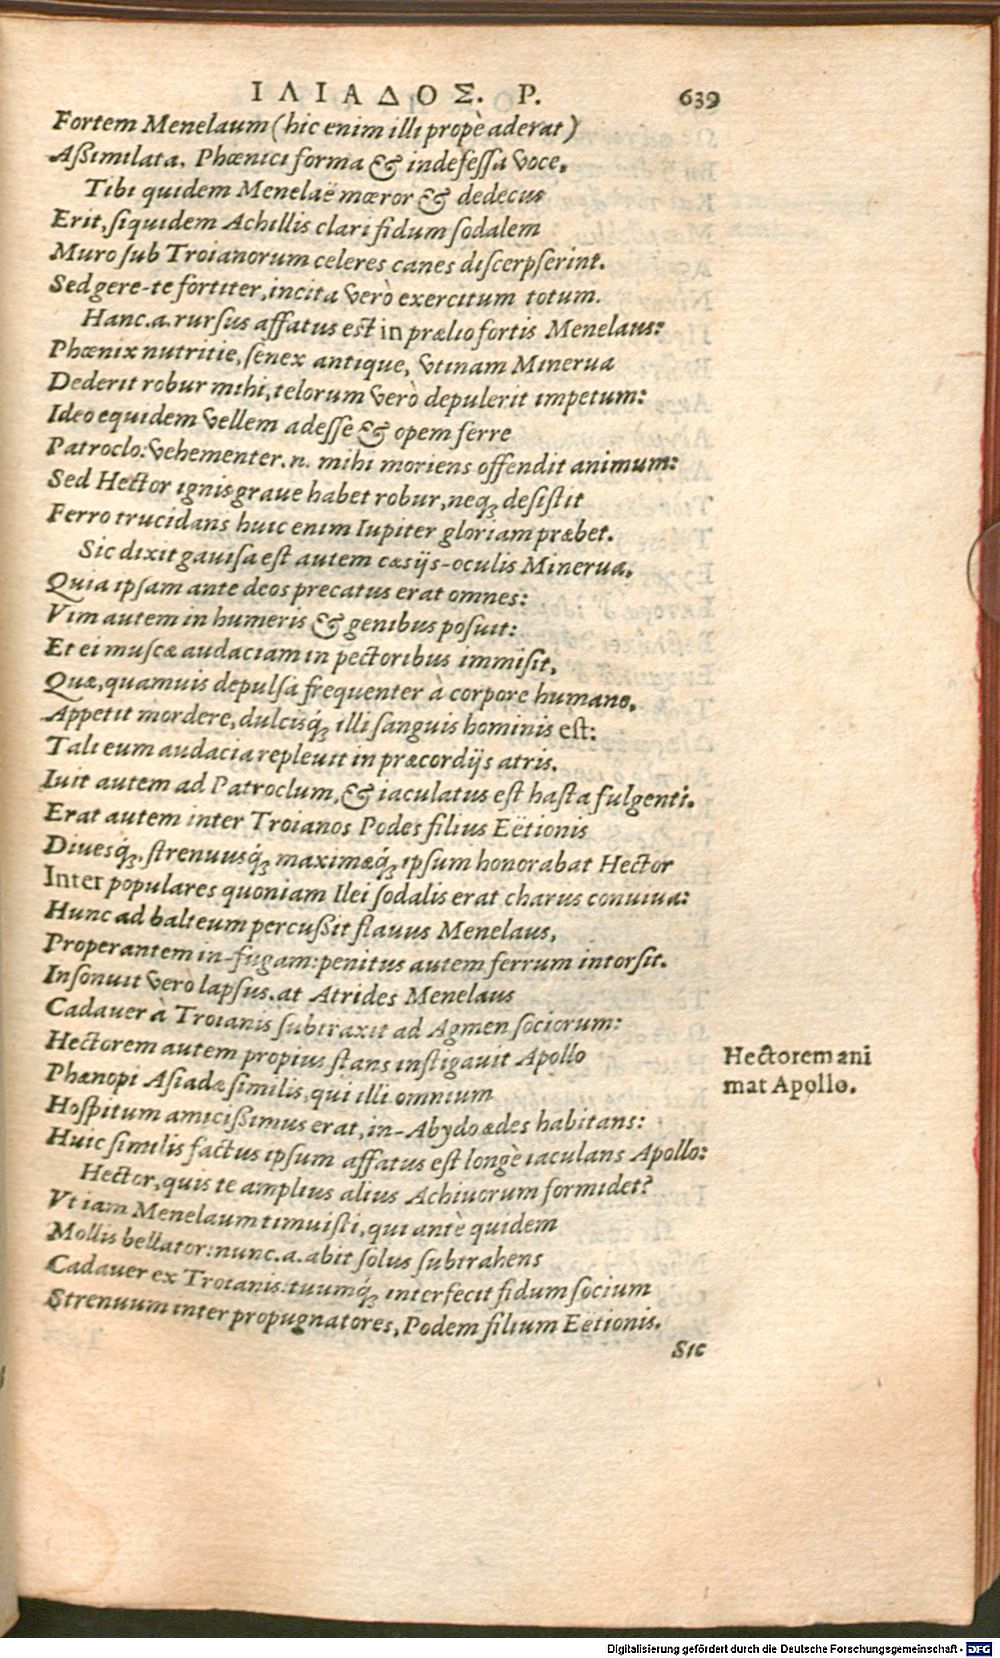 ΙΛΙΑΔΟΣ. Ρ. 639
Fortem Menelaum (hic enim illi propè aderat)
Aßimilata, Phœnici forma & indefessa voce,
Tibi quidem Menelaë mœror & dedecus
Erit, siquidem Achillis clari fidum sodalem
Muro sub Troianorum celeres canes discerpserint.
Sed gere-te fortiter, incita verò exercitum totum.
Hanc.a. rursus affatus est in prælio fortis Menelaus:
Phœnix nutritie, senex antique, vtinam Minerua
Dederit robur mihi, telorum verò depulerit impetum:
Ideo equidem vellem adesse & opem ferre
Patroclo: vehementer.n. mihi moriens offendit animum:
Sed Hector ignis graue habet robur, neq; desistit
Ferro trucidans huic enim Iupiter gloriam præbet.
Sic dixit gauisa est autem cæsijs-oculis Minerua,
Quia ipsam ante deos precatus erat omnes:
Vim autem in humeris & genibus posuit:
Et ei muscæ audaciam in pectoribus immisit,
Quæ, quamuis depulsa frequenter à corpore humano,
Appetit mordere, dulcisq́; illi sanguis hominis est:
Tali eum audacia repleuit in præcordijs atris.
Iuit autem ad Patroclum, & iaculatus est hasta fulgenti.
Erat autem inter Troianos Podes filius Eëtionis
Diuesq́;, strenuusq́; maximæq́; ipsum honorabat Hector
Inter populares quoniam Ilei sodalis erat charus conuiua:
Hunc ad balteum percußit flauus Menelaus,
Properantem in-fugam: penitus autem ferrum intorsit.
Insonuit verò lapsus. at Atrides Menelaus
Cadauer à Troianis subtraxit ad Agmen sociorum:
Hectorem autem propius stans instigauit Apollo
Phænopi Asiadæ similis, qui illi omnium
Hospitum amicißimus erat, in-Abydo ædes habitans:
Huic similis factus ipsum affatus est longè iaculans Apollo:
Hector, quis te amplius alius Achiuorum formidet?
Vt iam Menelaum timuisti, qui antè quidem
Mollis bellator: nunc.a. abit solus subtrahens
Cadauer ex Troianis: tuumq́; interfecit fidum socium
Strenuum inter propugnatores, Podem filium Eëtionis.
Sic
Hectorem ani
mat Apollo.
Digitalisierung gefördert durch die Deutsche Forschungsgemeinschaft - DFG